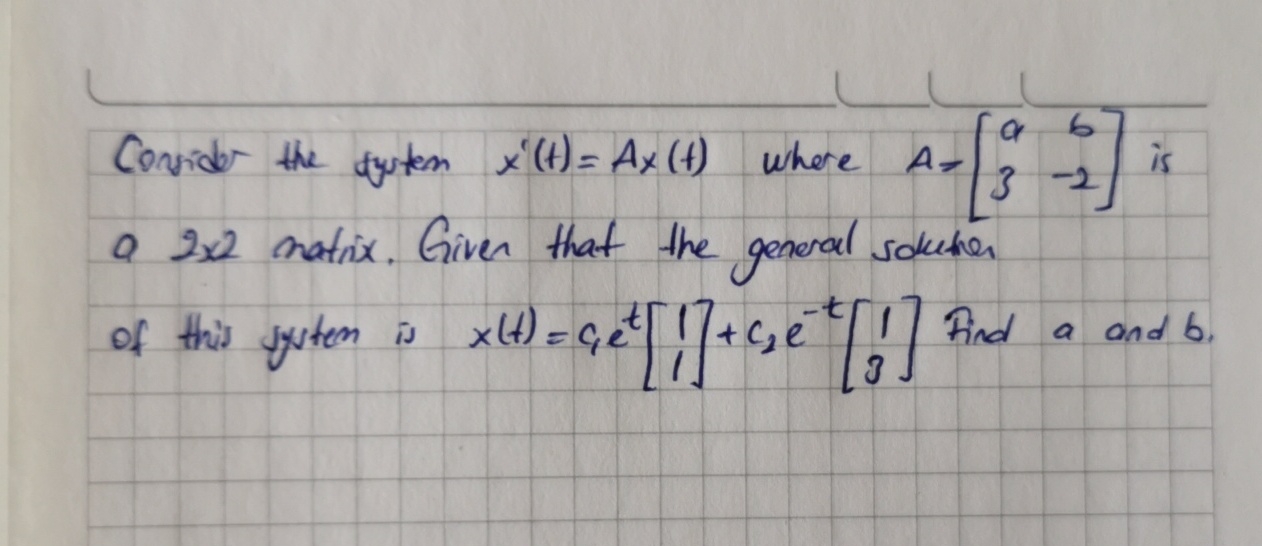 Consider the system x'(t) = Ax(t) where A = [a b; 3 -2] is
a 2x2 matrix. Given that the general solution
of this system is x(t) = c₁eᵗ[1; 1] + c₂e⁻ᵗ[1; 3] Find a and b.